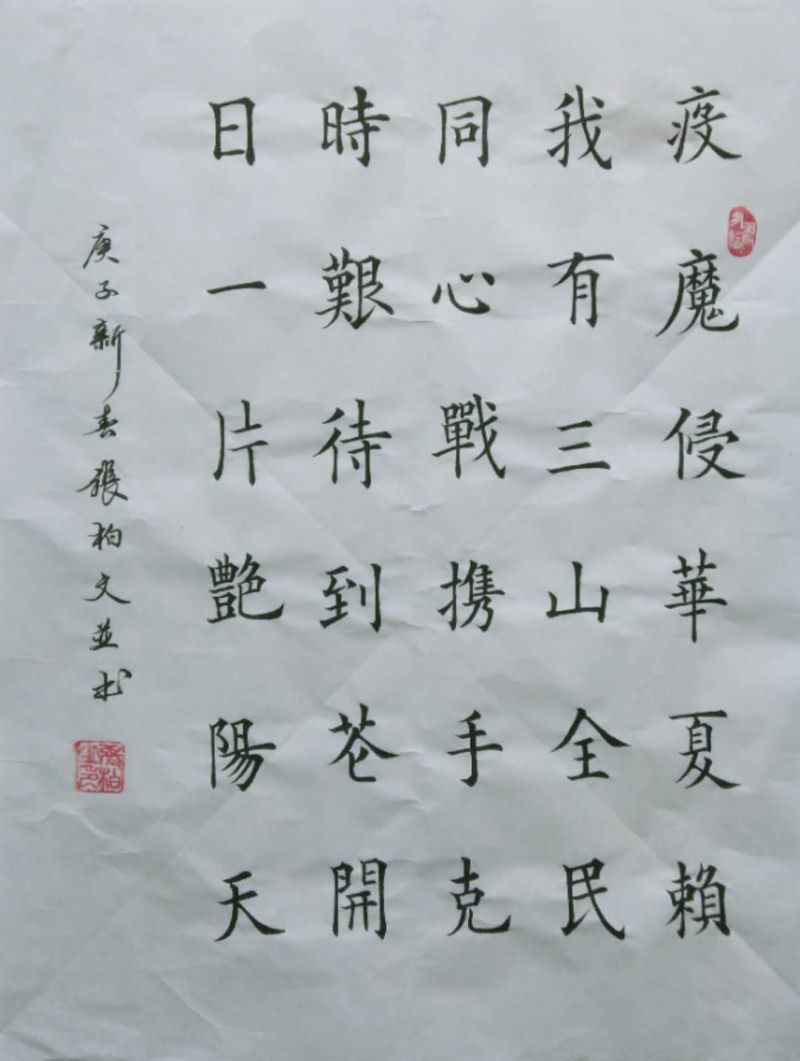 疫魔侵華夏賴
我有三山全民
同心戰攜手克
時艱待到芲開
日一片艷陽天
庚子新春張柏文並书